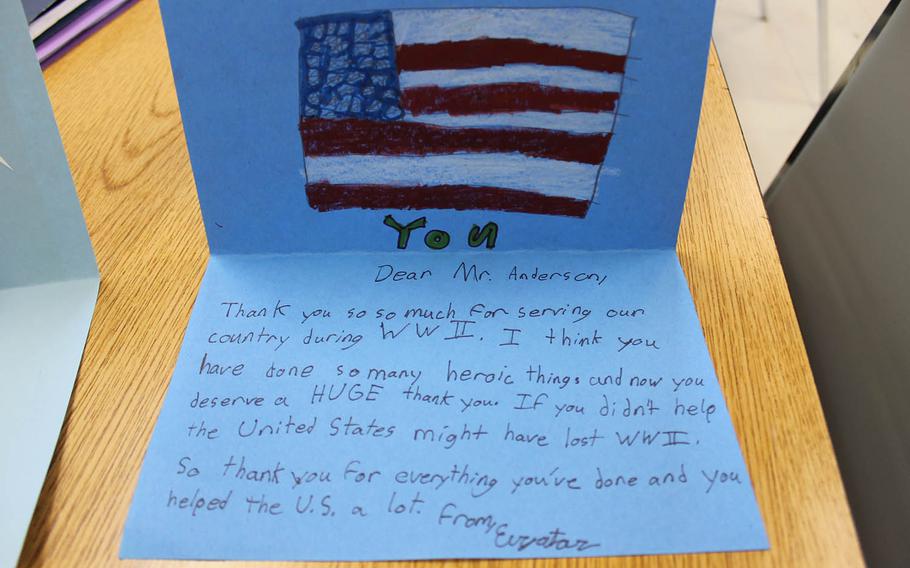 You
Dear Mr. Anderson,
Thank you so so much for serving our
country during WWII. I think you
have done so many heroic things and now you
deserve a HUGE thank you. If you didn't help
the United States might have lost WWII.
So thank you for everything you've done and you
helped the U.S. a lot. From,